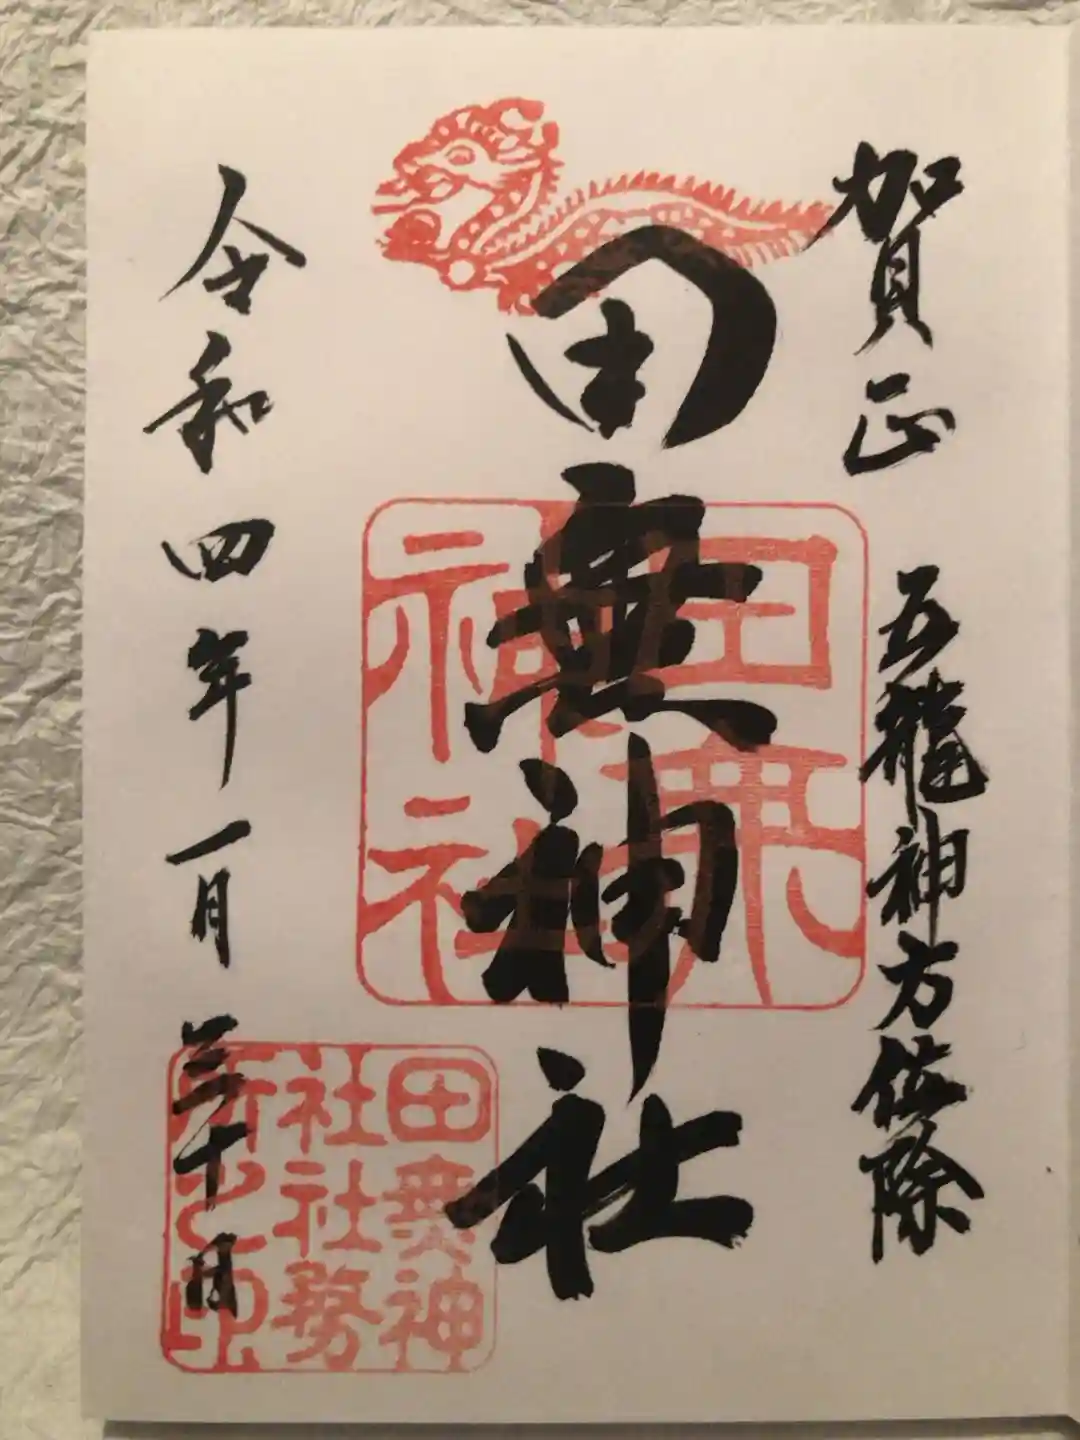 賀正 五龍神方位除
田無神社
令和四年一月三十日
田無神社
田無神社社務所之印